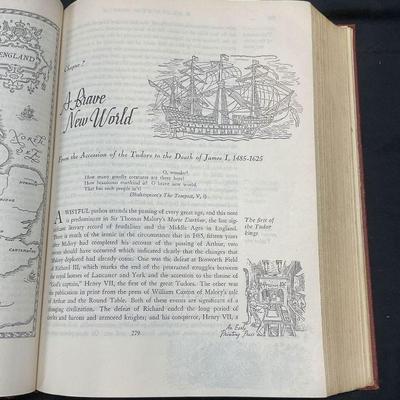 ENGLAND
NORTH
SEA
Chapter 7
A Brave
New World
From the Accession of the Tudors to the Death of James I, 1485-1625
O, wonder!
How many goodly creatures are there here!
How beauteous mankind is! O brave new world,
That has such people in't!
(Shakespeare's The Tempest, V, i)
A WISTFUL pathos attends the passing of every great age, and this note
is predominant in Sir Thomas Malory's Morte Darthur, the last sig-
nificant literary record of feudalism and the Middle Ages in England.
There is much of the ironic in the circumstance that in 1485, fifteen years
after Malory had completed his account of the passing of Arthur, two
events should have occurred which indicated clearly that the changes that
Malory deplored had already come. One was the defeat at Bosworth Field
of Richard III, which marked the end of the protracted struggles between
the royal houses of Lancaster and York and the accession to the throne of
"God's captain," Henry VII, the first of the great Tudors. The other was
the publication in print from the press of William Caxton of Malory's tale
of Arthur and the Round Table. Both of these events are significant of a
changing civilization. The defeat of Richard ended the long period of
barons and heroism and armored knights; and his conqueror, Henry VII, a
The first of
the Tudor
kings
An Early
Printing Press
279